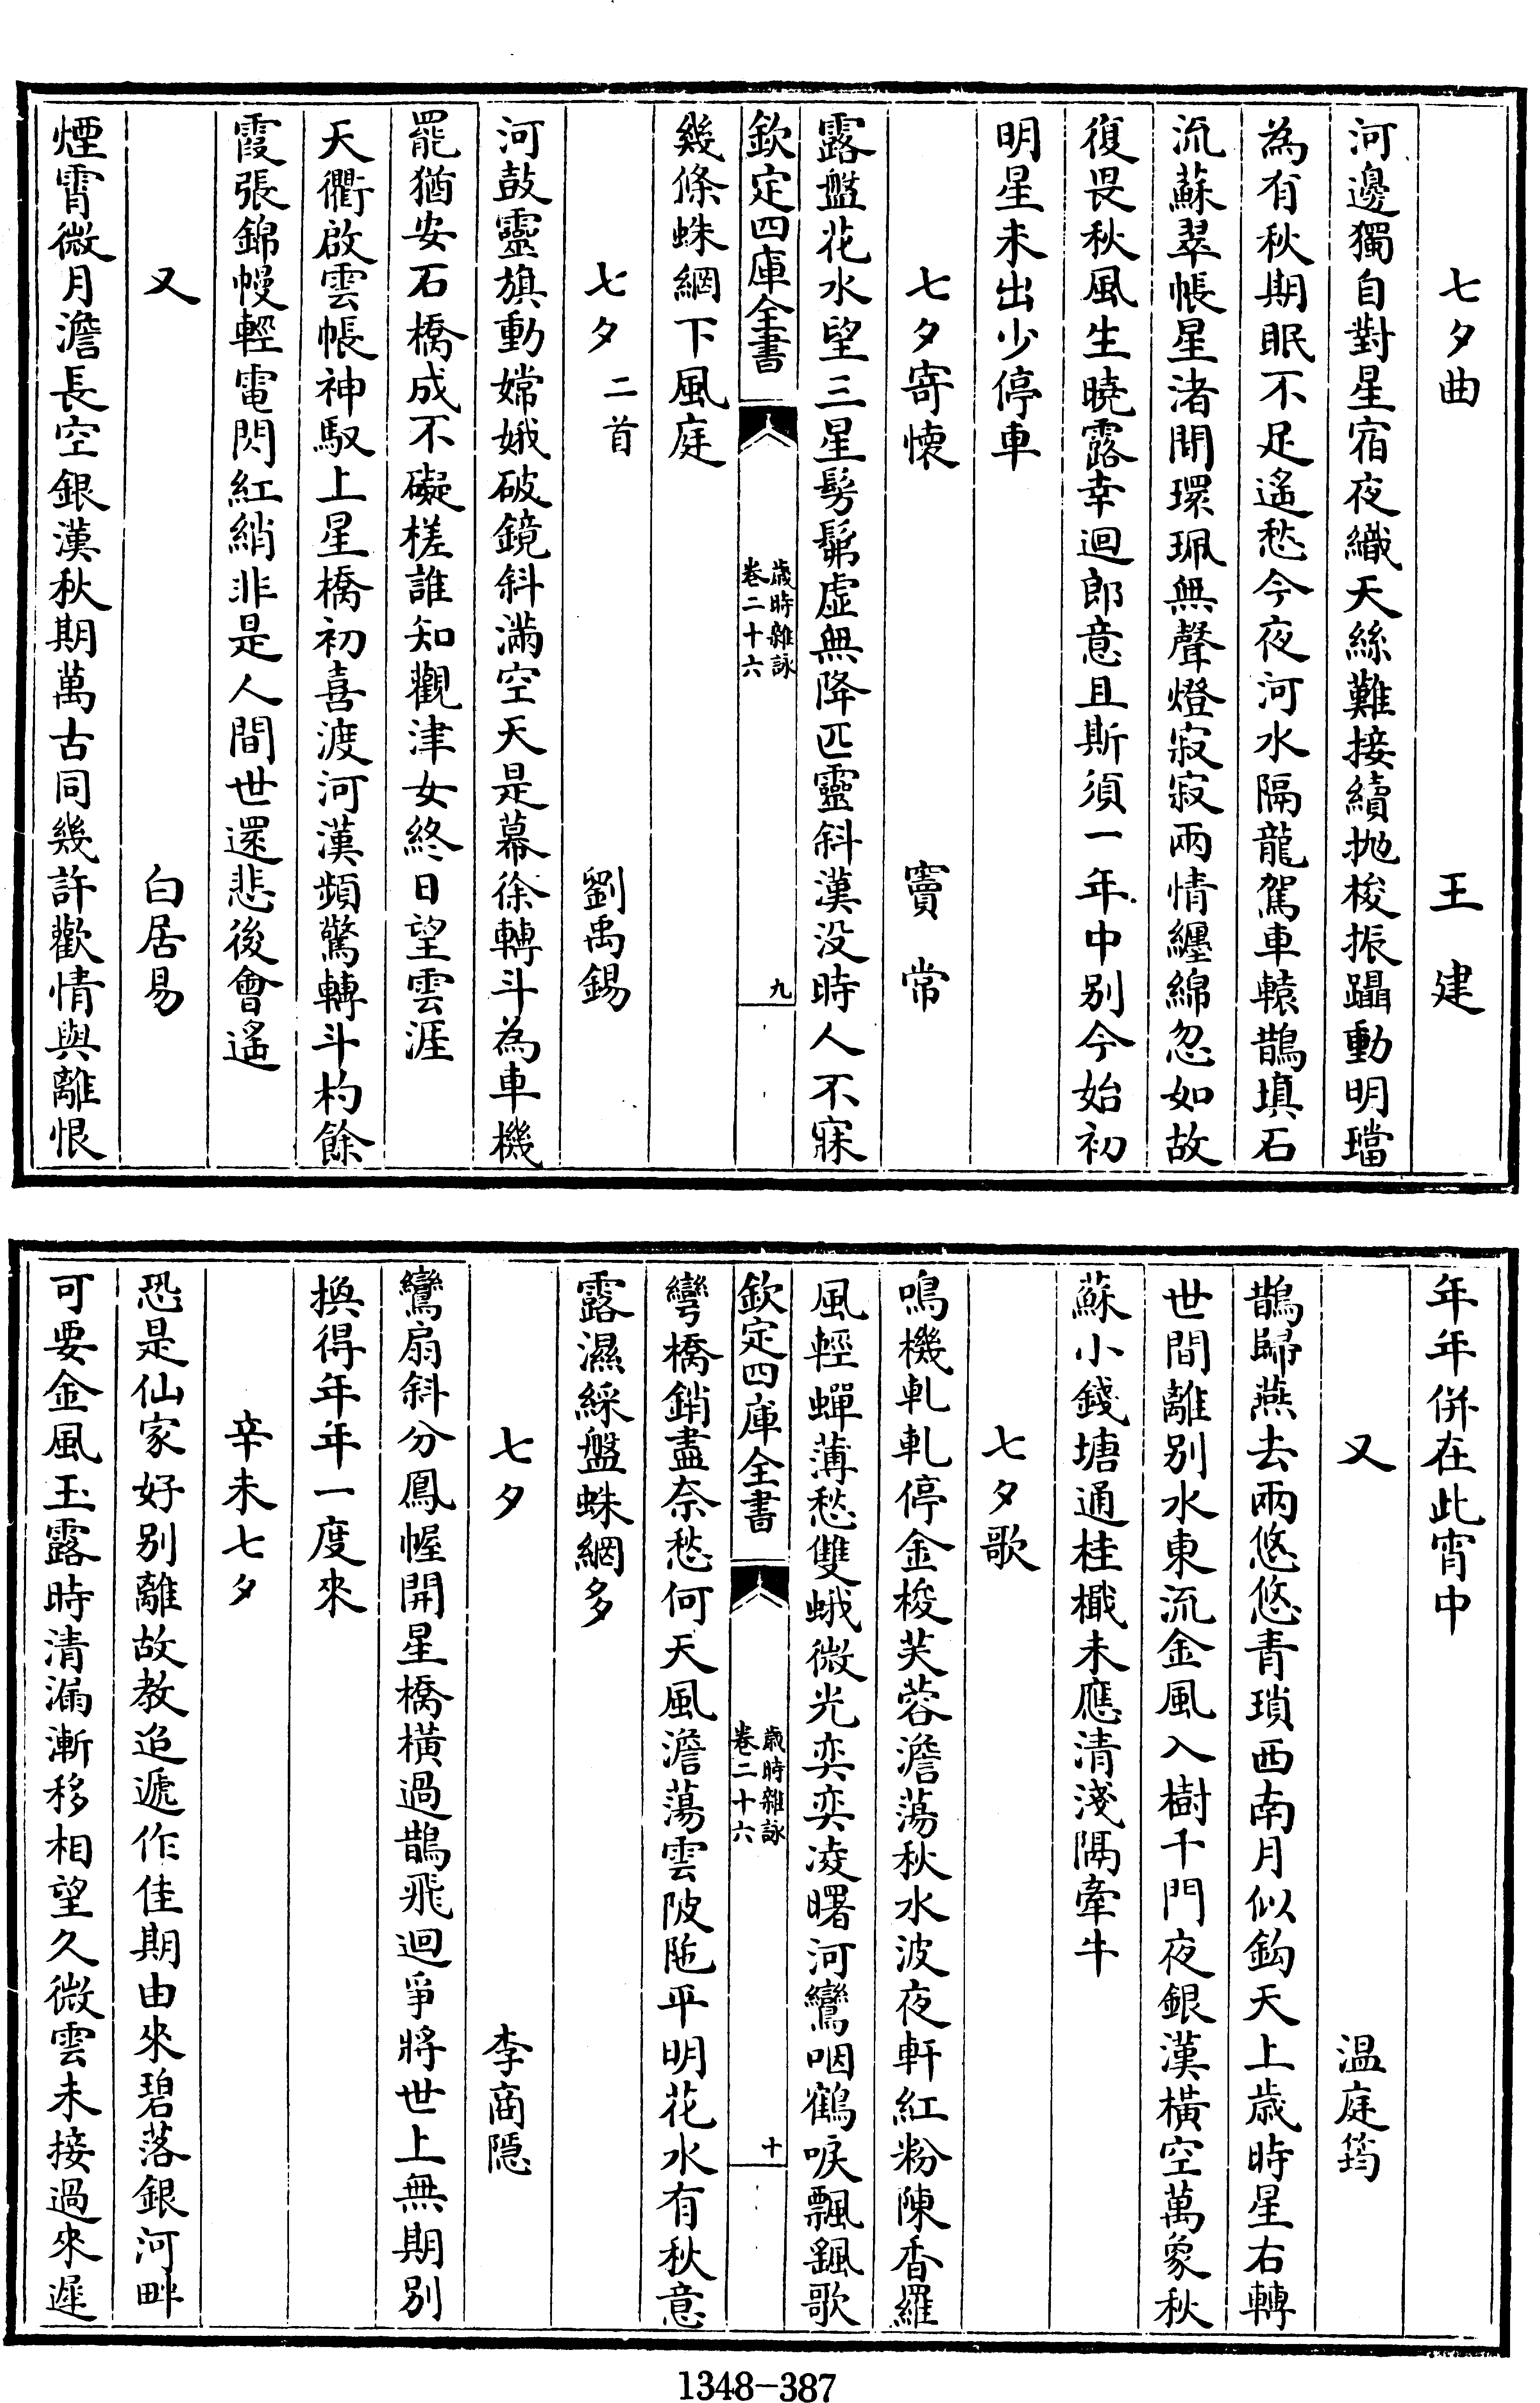 七夕曲　王建
河邊獨自對星宿夜織天絲難接續抛梭振躡動明璫
為有秋期眠不足遙愁今夜河水隔龍駕車轅鵲填石
流蘇翠帳星渚閒環珮無聲燈寂寂兩情纏綿忽如故
復畏秋風生曉露幸迴郎意且斯須一年中别今始初
明星未出少停車
七夕寄懷　竇常
露盤花水望三星髣髴虛無降匹靈斜漢没時人不寐
欽定四庫全書　歲時雜詠卷二十六　九
幾條蛛網下風庭
七夕二首　劉禹錫
河鼓靈旗動嫦娥破鏡斜滿空天是幕徐轉斗為車機
罷猶安石橋成不礙槎誰知觀津女終日望雲涯
天衢啟雲帳神馭上星橋初喜渡河漢頻驚轉斗杓餘
霞張錦幔輕電閃紅綃非是人間世還悲後會遙
又　白居易
煙霄微月澹長空銀漢秋期萬古同幾許歡情與離恨
年年併在此宵中
又　温庭筠
鵲歸燕去兩悠悠青瑣西南月似鈎天上歲時星右轉
世間離别水東流金風入樹千門夜銀漢橫空萬象秋
蘇小錢塘通桂檝未應清淺隔牽牛
七夕歌
鳴機軋軋停金梭芙蓉澹蕩秋水波夜軒紅粉陳香羅
風輕蟬薄愁雙蛾微光奕奕凌曙河鸞咽鶴唳飄颻歌
欽定四庫全書　歲時雜詠卷二十六　十
彎橋銷盡奈愁何天風澹蕩雲陂陁平明花水有秋意
露濕綵盤蛛網多
七夕　李商隱
鸞扇斜分鳳幄開星橋橫過鵲飛迴爭將世上無期别
換得年年一度來
辛未七夕
恐是仙家好别離故教迢遞作佳期由來碧落銀河畔
可要金風玉露時清漏漸移相望久微雲未接過來遲
1348-387